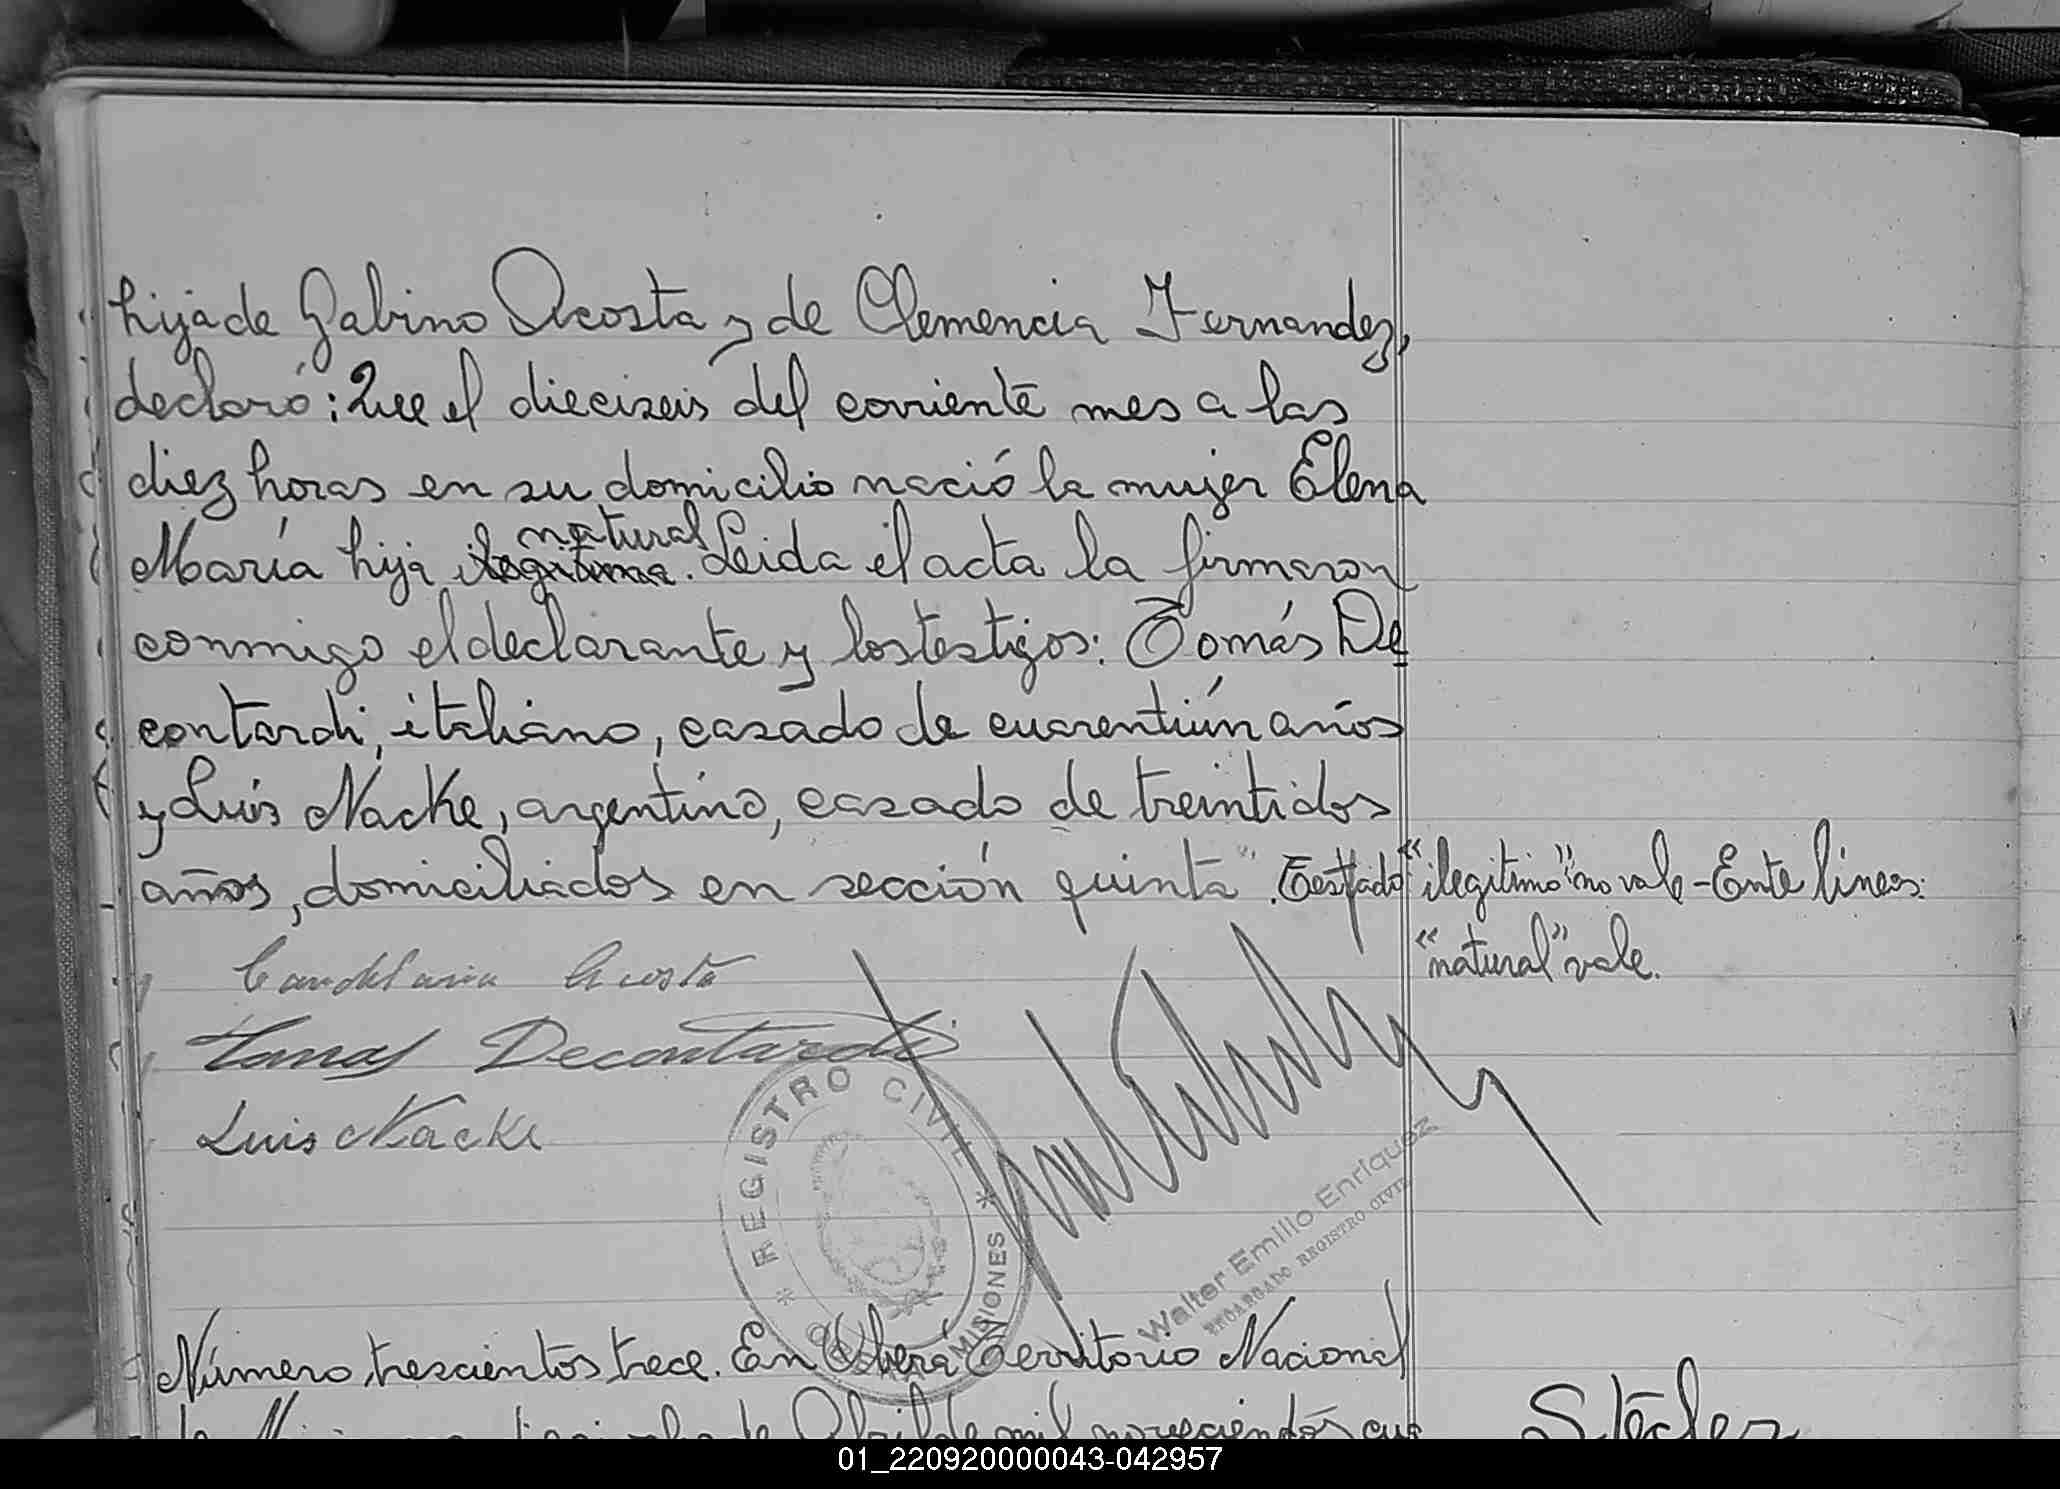 hija de Gabino Acosta y de Clemencia Fernandez,
declaró: Que el dieciseis del corriente mes a las
diez horas en su domicilio nació la mujer Elena
natural
María hija ilegitima. Leida el acta la firmaron
conmigo el declarante y los testigos: Tomás De
contardi, italiano, casado de cuarentiún años
y Luis Nacke, argentino, casado de treintidos
años, domiciliados en sección quinta". Testado "ilegitimo" no vale - Ente lineas:
"natural" vale.
Candelaria Acosta
Tomas Decontardi
Luis Nacke
* REGISTRO CIVIL *
MISIONES
Walter Emilio Enriquez
ENCARGADO REGISTRO CIVIL
Número trescientos trece. En Oberá Territorio Nacional
de Abril de mil novecientos cua
Stecler
01_220920000043-042957